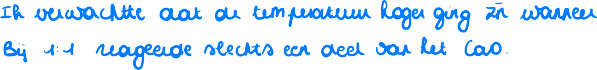 Ik verwachtte dat de temperatuur hoger ging zijn wanneer
Bij 1:1 reageerde slechts een deel van het CaO.